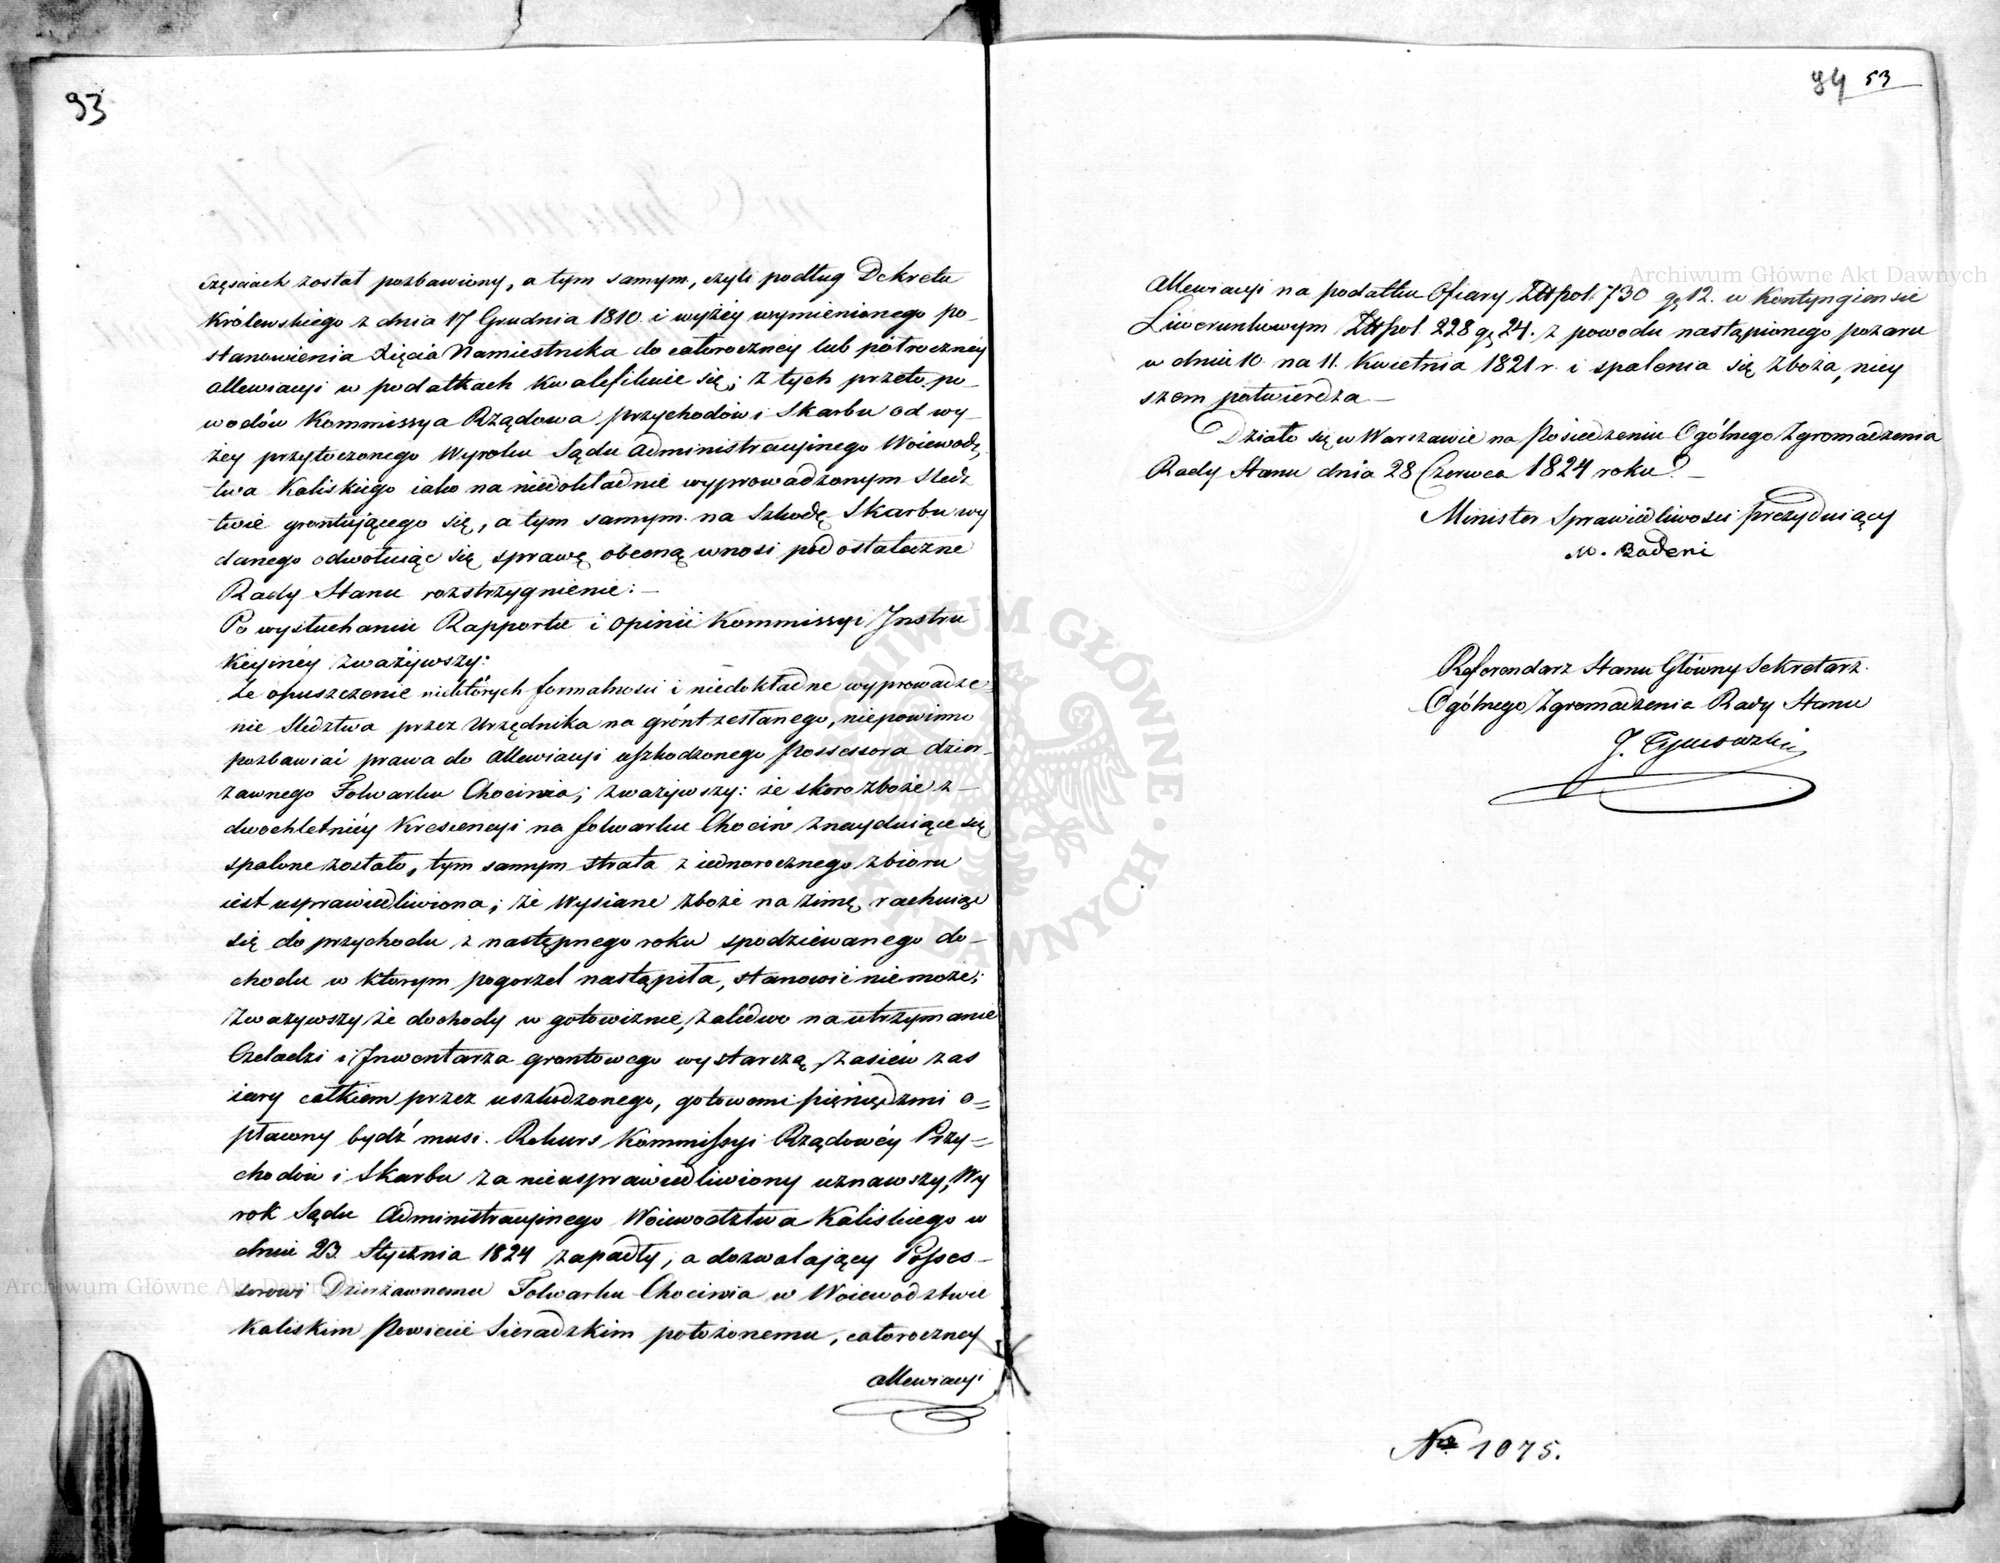 93
częściach został pozbawiony, a tym samym, czyli podług Dekretu
Królewskiego z dnia 17 Grudnia 1810. i wyżéy wymienionego po-
stanowienia Xięcia Namiestnika do całorocznéy lub półrocznéy
allewiacyi w podatkach kwalifikuie się; z tych przeto po-
wodów Kommissya Rządowa przychodów i Skarbu od wy-
żéy przytoczonego Wyroku Sądu Administracyinego Woiewódz
twa Kaliskiego iako na niedokładnie wyprowadzonym sledz
twie gruntującego się, a tym samym na Szkodę Skarbu wy
danego odwołuiąc się sprawę obecną wnosi pod ostateczne
Rady Stanu rozstrzygnienie: —
Po wysłuchaniu Rapportu i opinii Kommissyi Instru
kcyinéy zważywszy:
że opuszczenie niektórych formalności i niedokładne wyprowadze-
nie sledztwa przez Urzędnika na grónt zesłanego, niepowinno
pozbawiać prawa do allewiacyi uszkodzonego Possessora dzier-
żawnego Folwarku Chocinia; zważywszy: że skoro zboże z-
dwochletniéy Krescencyi na folwarku Chocin znayduiące się
spalone zostało, tym samym strata z iednorocznego zbioru
iest usprawiedliwiona; że wysiane zboże na zimę rachuiąc
się do przychodu z następnego roku spodziewanego do-
chodu w którym pogorzel nastąpiła, stanowić niemoże;
zważywszy że dochody w gotowiznie, zaledwo na utrzymanie
Czeladzi i Inwentarza grontowego wystarczą, zasiew zas
iary całkiem przez uszkodzonego, gotowemi pieniędzmi o=
płacony bydź musi. Rekurs Kommissyi Rządowéy Przy=
chodów i Skarbu za nieusprawiedliwiony uznawszy, Wy
rok Sądu Administracyinego Woiewództwa Kaliskiego w
dniu 23 Stycznia 1824 zapadły, a dozwalający Posses-
sorowi Dzierżawnemu Folwarku Chocinia w Woiewództwie
Kaliskim Powiecie Sieradzkim położonemu, całoroczney
allewiacyi
94 53
Allewiacyi na podatku Ofiary Złtpol. 730 gr 12. w Kontyngiensie
Liwerunkowym Złtpol 228 gr 24. z powodu nastąpionego pożaru
w dniu 10 na 11. Kwietnia 1821 r. i spalenia się zboża, niey
szem potwierdza —
Działo się w Warszawie na Posiedzeniu Ogólnego Zgromadzenia
Rady Stanu dnia 28 Czerwca 1824 roku. —
Minister Sprawiedliwości prezyduiący
M. Badeni
Referendarz Stanu Główny Sekretarz
Ogólnego Zgromadzenia Rady Stanu
No 1075.
Archiwum Główne Akt Dawnych
Archiwum Główne Akt Dawnych
ARCHIWUM GŁÓWNE AKT DAWNYCH